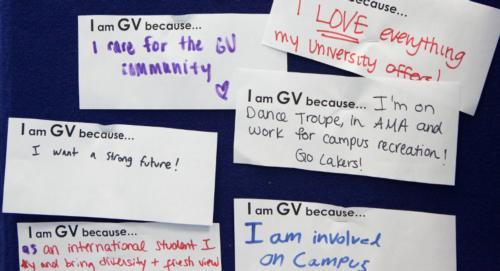 I am GV because...
I care for the GV
community
because...
I LOVE everything
my University offers!
I am GV because... I'm on
Dance Troupe, in AMA and
work for campus recreation!
Go Lakers!
I am GV because...
I want a strong future!
I am GV because...
as an international student I
and bring diversity + fresh view
I am GV because...
I am involved
on Campus